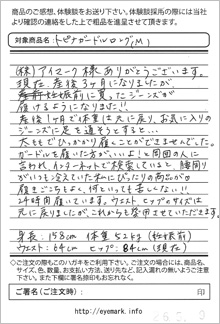 商品のご感想、体験談をお送り下さい。体験談採用の際には当社
より確認の連絡をした上で粗品を進呈させて頂きます。
対象商品名:トピナガードルロング(M)
(株)アイマーク様 ありがとうございます。
現在 産後3ヶ月になりましたが、
産前妊娠前に買ったジーンズが
履けるようになりました!!
産後1ヶ月で体重は元に戻り、お気に入りの
ジーンズに足を通そうとすると…
太ももでひっかかり履くことができませんでした。
ガードルを履いた方がいいよ!と周囲の人に
言われ、インターネットで検索していると 腰周り
がいつも冷えていた私にぴったりの商品が☆
履きごこちもよく、何といっても苦しくない!!
24時間履いています。ウエスト、ヒップのサイズは
元に戻りましたが、これからも愛用させていただきます。
身長:158cm 体重52kg(妊娠前)
ウエスト:64cm ヒップ:84cm(現在)
◇ご注文の際もこのハガキをご利用下さい。ご注文の場合には、商品名、
サイズ、色、数量、お支払い方法、送り先など、記入漏れの無いようご注意
下さい。また下欄に日付、ご署名または捺印もお願いします。
ご署名(ご注文時): 印
http://eyemark.info/